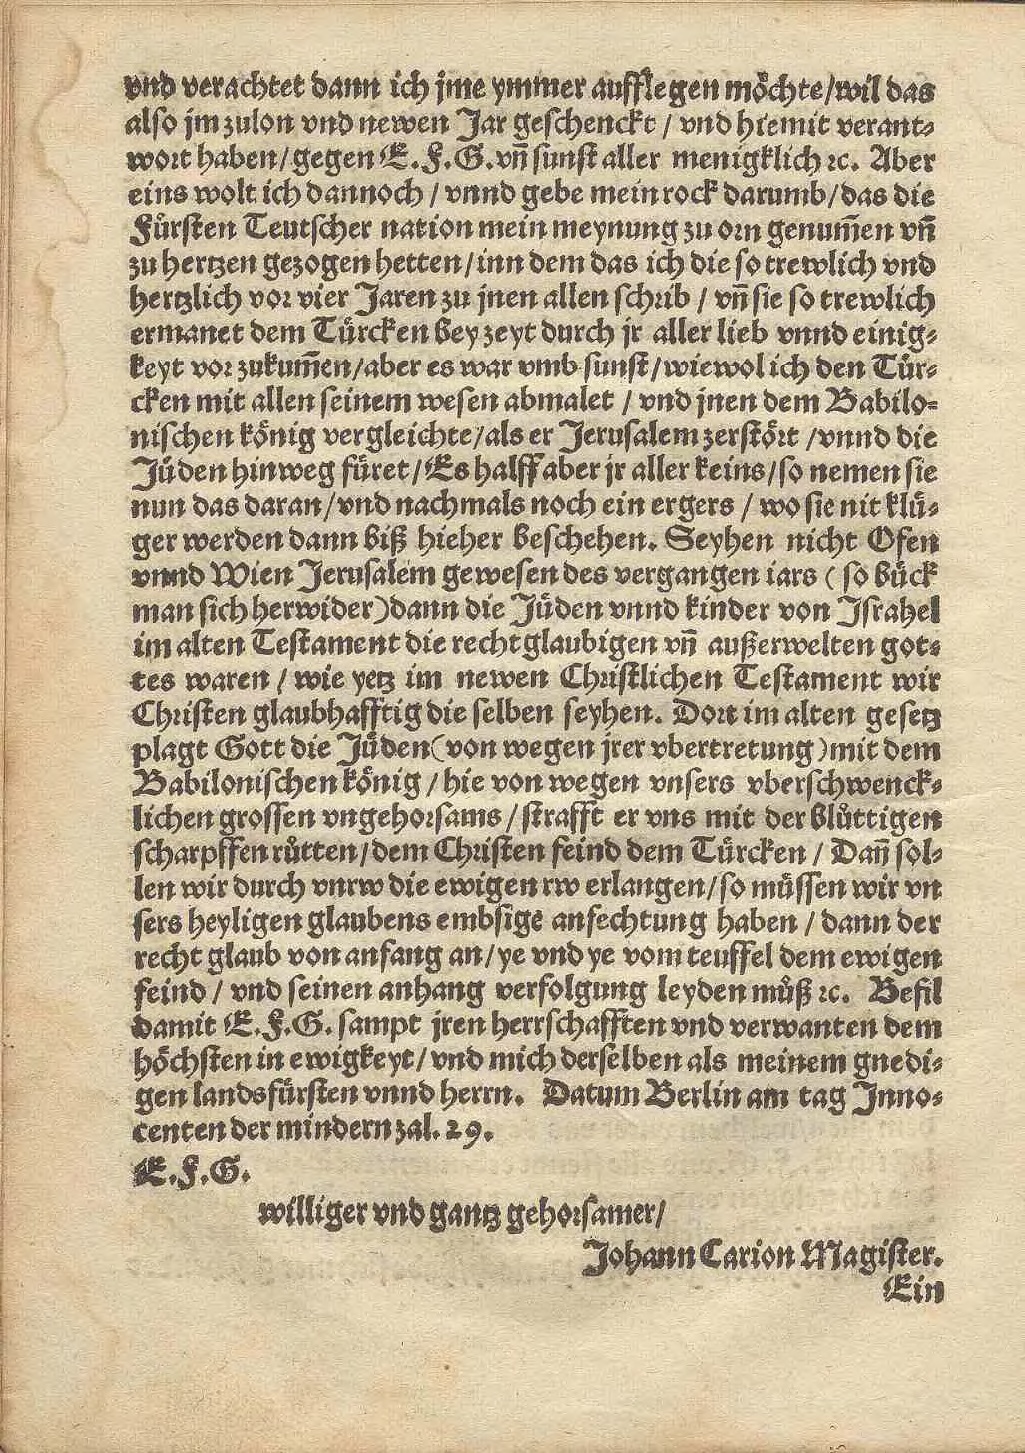 vnd verachtet dann ich jme ymmer aufflegen möchte/wil das
also jm zulon vnd newen Jar geschenckt / vnd hiemit verant⸗
wort haben/gegen E.F.G.vñ sunst aller menigklich ꝛc. Aber
eins wolt ich dannoch / vnnd gebe mein rock darumb/das die
Fürsten Teutscher nation mein meynung zu orn genum̃en vñ
zu hertzen gezogen hetten/inn dem das ich die so trewlich vnd
hertzlich vor vier Jaren zu jnen allen schrib / vñ sie so trewlich
ermanet dem Türcken bey zeyt durch jr aller lieb vnnd einig⸗
keyt vor zukum̃en/aber es war vmb sunst/wiewol ich den Tür⸗
cken mit allen seinem wesen abmalet / vnd jnen dem Babilo⸗
nischen könig vergleichte/als er Jerusalem zerstört /vnnd die
Jüden hinweg füret/Es halff aber jr aller keins/so nemen sie
nun das daran/vnd nachmals noch ein ergers / wo sie nit klü⸗
ger werden dann biß hieher beschehen. Seyhen nicht Ofen
vnnd Wien Jerusalem gewesen des vergangen iars ( so bück
man sich herwider)dann die Jüden vnnd kinder von Israhel
im alten Testament die rechtglaubigen vñ außerwelten got⸗
tes waren / wie yetz im newen Christlichen Testament wir
Christen glaubhafftig die selben seyhen. Dort im alten gesetz
plagt Gott die Jüden(von wegen jrer vbertretung)mit dem
Babilonischen könig / hie von wegen vnsers vberschwenck⸗
lichen grossen vngehorsams / strafft er vns mit der blůttigen
scharpffen růtten/dem Christen feind dem Türcken / Dañ sol⸗
len wir durch vnrw die ewigen rw erlangen/so müssen wir vn
sers heyligen glaubens embsige anfechtung haben / dann der
recht glaub von anfang an/ye vnd ye vom teuffel dem ewigen
feind / vnd seinen anhang verfolgung leyden můß ꝛc. Befil
damit E.F.G. sampt jren herrschafften vnd verwanten dem
höchsten in ewigkeyt/vnd mich derselben als meinem gnedi⸗
gen landsfürsten vnnd herrn. Datum Berlin am tag Inno⸗
centen der mindern zal.29.
E.F.G.
williger vnd gantz gehorsamer/
Johann Carion Magister.
Ein